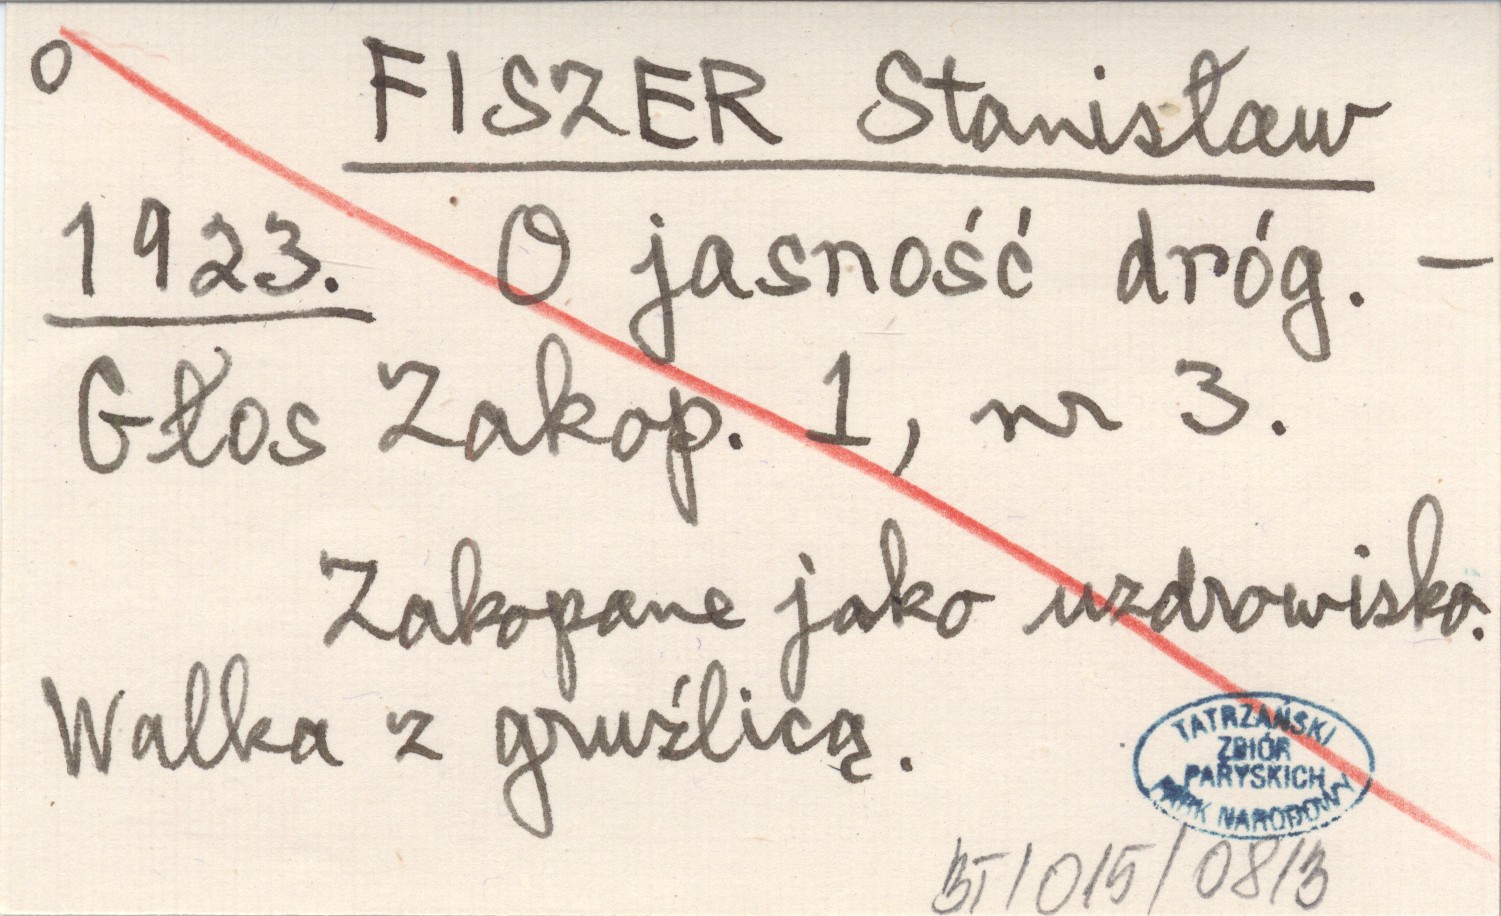 o FISZER Stanisław
1923. O jasność dróg. —
Głos Zakop. 1, nr 3.
Zakopane jako uzdrowisko.
Walka z gruźlicą.
TATRZAŃSKI
ZBIÓR
PARYSKICH
PARK NARODOWY
BT/015/08/3